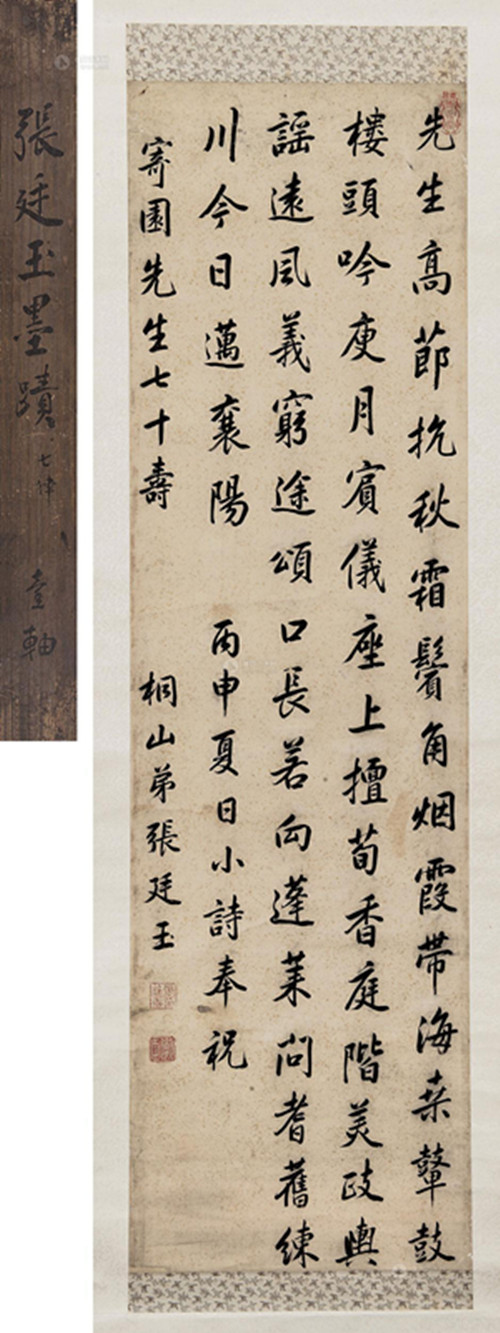 先生高節抗秋霜鬢角烟霞帶海桒鼙鼓
樓頭吟庾月賓儀座上擅荀香庭階美政輿
謡遠風義窮途頌口長若向蓬萊問耆舊練
川今日邁襄陽 丙申夏日小詩奉祝
寄園先生七十壽 桐山弟張廷玉
張廷玉墨蹟 七律 壹軸